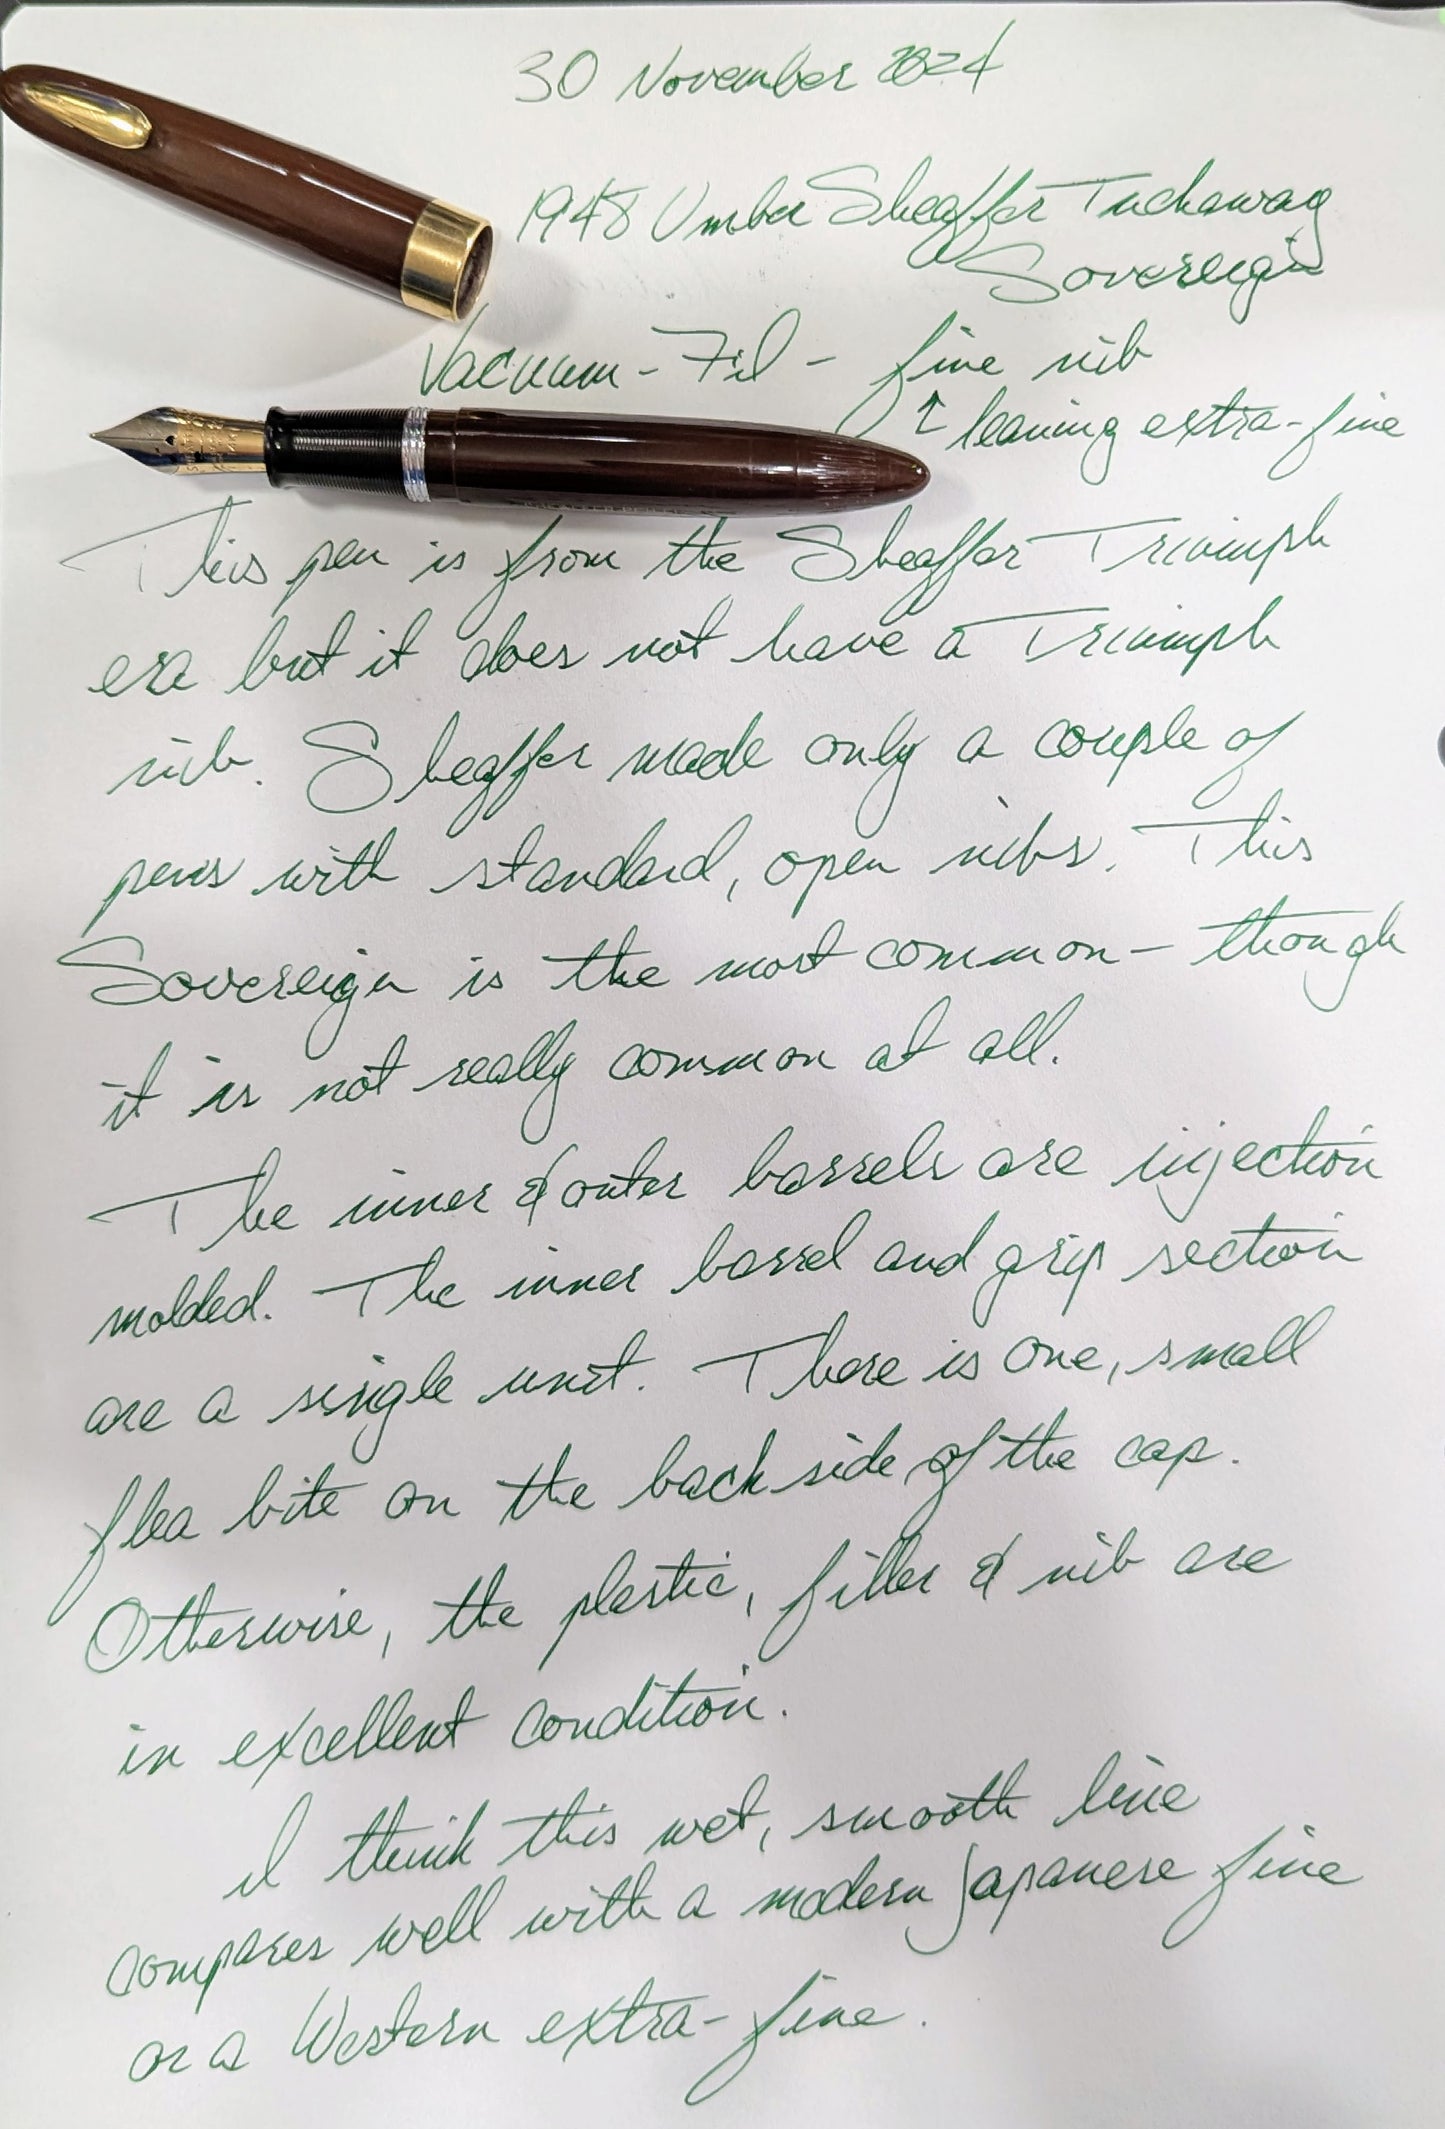 30 November 2024
1948 Umber Sheaffer Tuckaway
Sovereign
Vacuum-Fil - fine nib
↑ leaning extra-fine
This pen is from the Sheaffer Triumph
era but it does not have a Triumph
nib. Sheaffer made only a couple of
pens with standard, open nibs. This
Sovereign is the most common - though
it is not really common at all.
The inner & outer barrels are injection
molded. The inner barrel and grip section
are a single unit. There is one, small
flea bite on the back side of the cap.
Otherwise, the plastic, filler & nib are
in excellent condition.
I think this wet, smooth line
compares well with a modern Japanese fine
or a Western extra-fine.